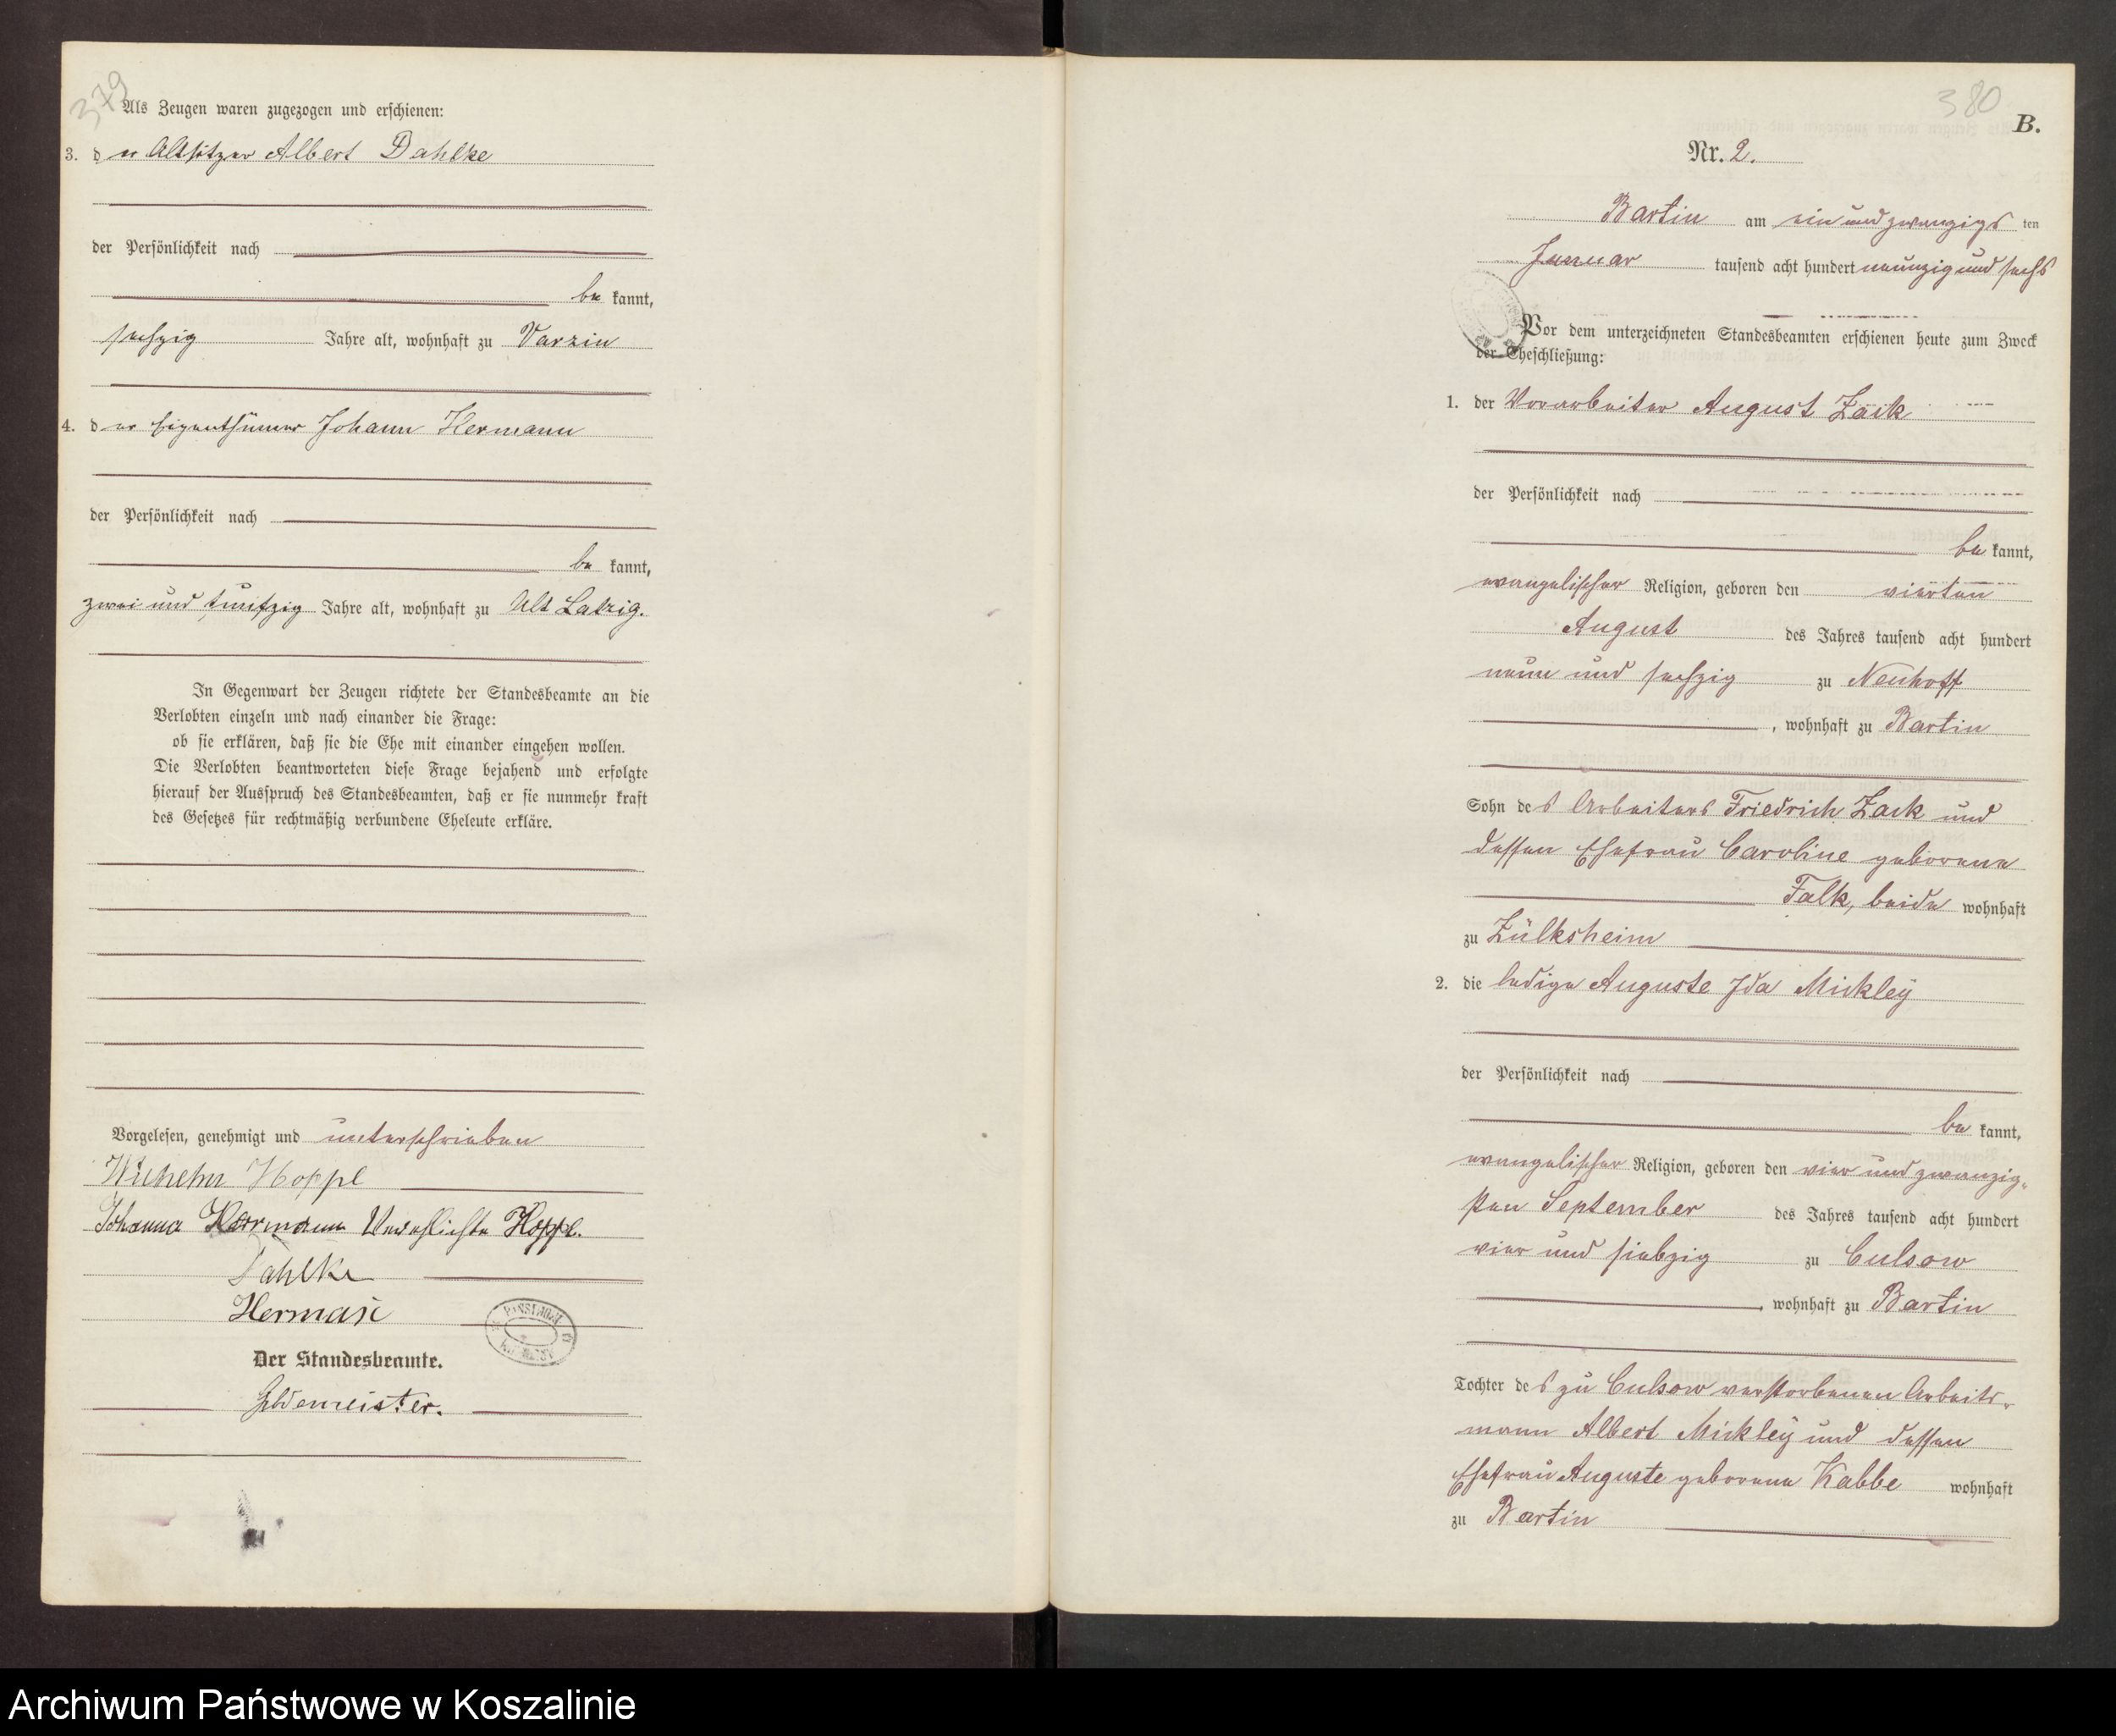 379
Als Zeugen waren zugezogen und erschienen:
3. der Altsitzer Albert Dahlke
der Persönlichkeit nach
be kannt,
sechzig Jahre alt, wohnhaft zu Varzin
4. der Eigenthümer Johann Hermann
der Persönlichkeit nach
be kannt,
zwei und fünfzig Jahre alt, wohnhaft zu Alt Latzig.
In Gegenwart der Zeugen richtete der Standesbeamte an die
Verlobten einzeln und nach einander die Frage:
ob sie erklären, daß sie die Ehe mit einander eingehen wollen.
Die Verlobten beantworteten diese Frage bejahend und erfolgte
hierauf der Ausspruch des Standesbeamten, daß er sie nunmehr kraft
des Gesetzes für rechtmäßig verbundene Eheleute erkläre.
Vorgelesen, genehmigt und unterschrieben
Wilhelm Hoppe
Johanna Hermann Verehelichte Hoppe.
Dahlke
Hermann
Der Standesbeamte.
380
B.
Nr. 2.
Bartin am ein und zwanzigs ten
Januar tausend acht hundert neunzig und sechs
Vor dem unterzeichneten Standesbeamten erschienen heute zum Zweck
der Eheschließung:
1. der Vorarbeiter August Zack
der Persönlichkeit nach
be kannt,
evangelischer Religion, geboren den vierten
August des Jahres tausend acht hundert
neun und sechzig zu Neuhoff
, wohnhaft zu Bartin
Sohn des Arbeiters Friedrich Zack und
dessen Ehefrau Caroline geborene
Falk, beide wohnhaft
zu Zülksheim
2. die ledige Auguste Ida Mickleÿ
der Persönlichkeit nach
be kannt,
evangelischer Religion, geboren den vier und zwanzig-
sten September des Jahres tausend acht hundert
vier und siebzig zu Culsow
, wohnhaft zu Bartin
Tochter des zu Culsow verstorbenen Arbeits-
mann Albert Mickleÿ und dessen
Ehefrau Auguste geborene Kabbe wohnhaft
zu Bartin
Archiwum Państwowe w Koszalinie